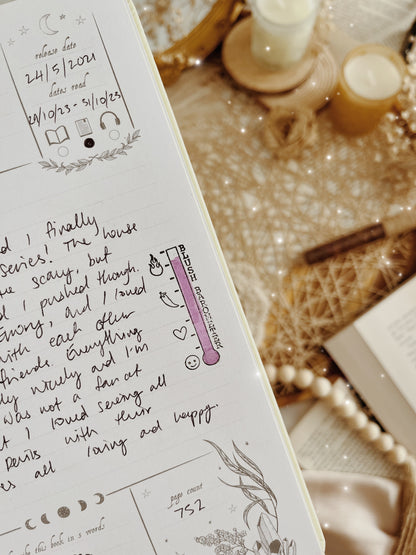 release date
24/5/2021
dates read
29/10/23 - 31/10/23
d I finally
series! The house
e scary, but
d I pushed though.
Emory, and I loved
with each other
friends. Everything
ly nicely and I'm
was not a fan at
t I loved seeing all
Devils with their
es all loving and happy.
BLUSH BAROMETER
page count
752
this book in 3 words